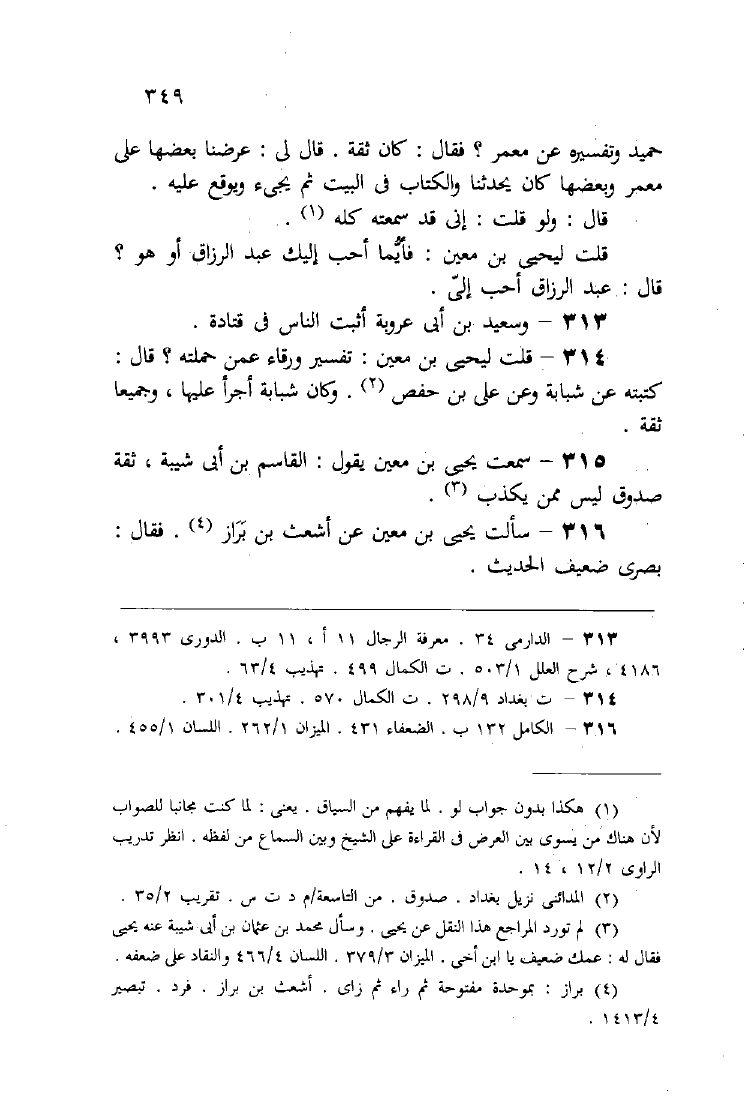 ٣٤٩
حميد وتفسيره عن معمر ؟ فقال : كان ثقة . قال لى : عرضنا بعضها على
معمر وبعضها كان يحدثنا والكتاب فى البيت ثم يجىء ويوقع عليه .
قال : ولو قلت : إنى قد سمعته كله (١) .
قلت ليحيى بن معين : فأيُّما أحب إليك عبد الرزاق أو هو ؟
قال : عبد الرزاق أحب إلىّ .
٣١٣ – وسعيد بن أبى عروبة أثبت الناس فى قتادة .
٣١٤ – قلت ليحيى بن معين : تفسير ورقاء عمن حملته ؟ قال :
كتبته عن شبابة وعن على بن حفص (٢) . وكان شبابة أجرأ عليها ، وجميعا
ثقة .
٣١٥ – سمعت يحيى بن معين يقول : القاسم بن أبى شيبة ، ثقة
صدوق ليس ممن يكذب (٣) .
٣١٦ – سألت يحيى بن معين عن أشعث بن بَرَاز (٤) . فقال :
بصرى ضعيف الحديث .
٣١٣ – الدارمى ٣٤ . معرفة الرجال ١١ أ ، ١١ ب . الدورى ٣٩٩٣ ،
٤١٨٦ ، شرح العلل ٥٠٣/١ . ت الكمال ٤٩٩ . تهذيب ٦٣/٤ .
٣١٤ – ت بغداد ٢٩٨/٩ . ت الكمال ٥٧٠ . تهذيب ٣٠١/٤ .
٣١٦ – الكامل ١٣٢ ب . الضعفاء ٤٣١ . الميزان ٢٦٢/١ . اللسان ٤٥٥/١ .
(١) هكذا بدون جواب لو . لما يفهم من السياق . يعنى : لما كنت مجانبا للصواب
لأن هناك من يسوى بين العرض فى القراءة على الشيخ وبين السماع من لفظه . انظر تدريب
الراوى ١٢/٢ ، ١٤ .
(٢) المدائنى نزيل بغداد . صدوق . من التاسعة/م د ت س . تقريب ٣٥/٢ .
(٣) لم تورد المراجع هذا النقل عن يحيى . وسأل محمد بن عثمان بن أبى شيبة عنه يحيى
فقال له : عمك ضعيف يا ابن أخى . الميزان ٣٧٩/٣ . اللسان ٤٦٦/٤ والنقاد على ضعفه .
(٤) براز : بموحدة مفتوحة ثم راء ثم زاى . أشعث بن براز . فرد . تبصير
١٤١٣/٤ .